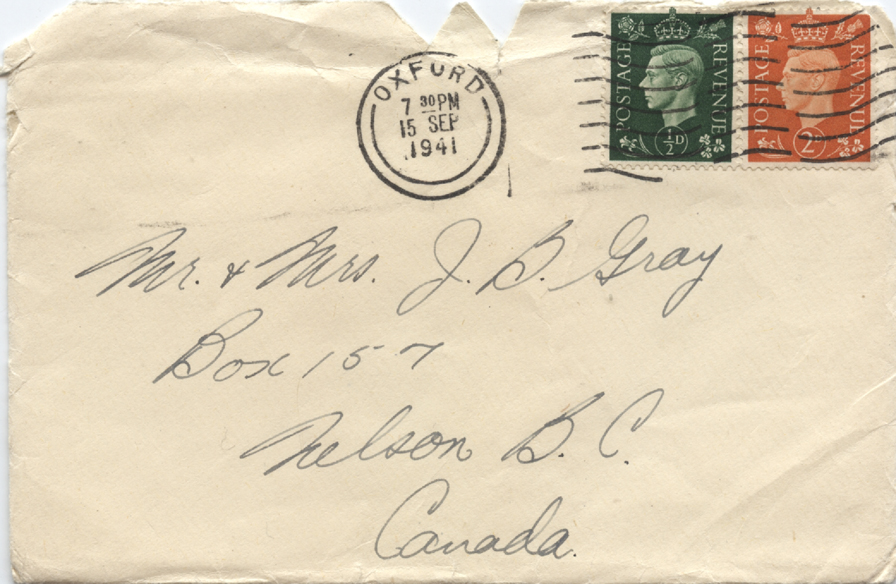 OXFORD
7 30PM
15 SEP
1941
POSTAGE REVENUE
½D
POSTAGE REVENUE
2D
Mr. & Mrs. J. B. Gray
Box 157
Nelson B. C.
Canada.